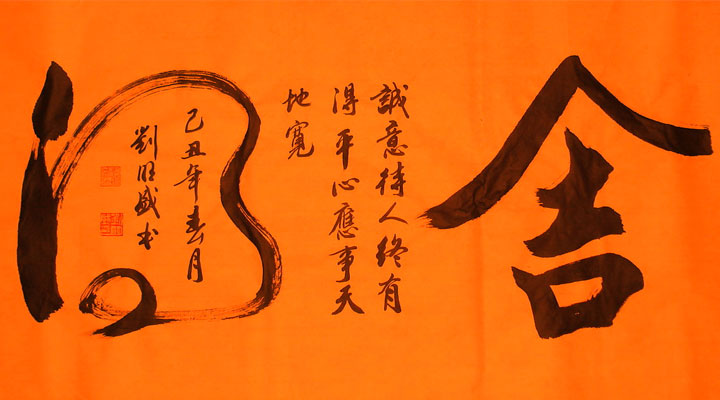 舍
得
誠意待人終有
得平心應事天
地寬
己丑年春月
劉旺盛书